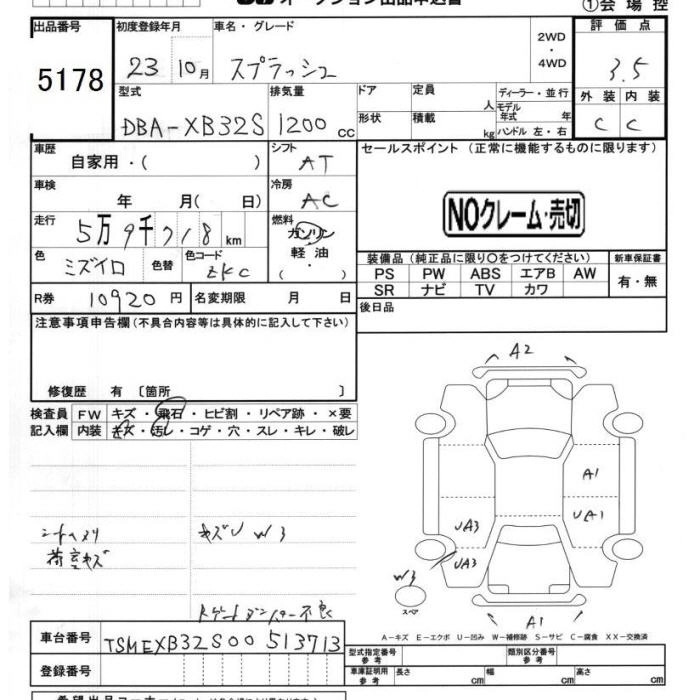 ①会場控
出品番号
5178
初度登録年月
23 10月
車名・グレード
スプラッシュ
2WD
・
4WD
評価点
3.5
外装 内装
C C
型式
DBA-XB32S
排気量
1200 cc
ドア
定員
人
形状
積載
kg
ディーラー・並行
モデル年式 年
ハンドル 左・右
車歴
自家用・( )
シフト
AT
車検
年 月( 日)
冷房
AC
走行
5万9千718km
燃料
ガソリン
軽油
( )
色
ミズイロ
色替
色コード
ZKC
R券 10920円
名変期限 月 日
セールスポイント (正常に機能するものに限ります)
NOクレーム・売切
装備品 (純正品に限り○をつけてください)
PS PW ABS エアB AW
SR ナビ TV カワ
新車保証書
有・無
後日品
注意事項申告欄 (不具合内容等は具体的に記入して下さい)
修復歴 有 〔箇所 〕
検査員
記入欄
FW キズ・飛石・ヒビ割・リペア跡・×要
内装 キズ・汚レ・コゲ・穴・スレ・キレ・破レ
シートヘタリ
荷室キズ
キズU W3
A2
A1
UA1
UA3
UA3
W3
スペア
A1
A-キズ E-エクボ U-凹み W-補修跡 S-サビ C-腐食 XX-交換済
車台番号
TSMEXB32S00513713
登録番号
型式指定番号
参考
類別区分番号
参考
車庫証明用
参考
長さ cm
幅 cm
高さ cm